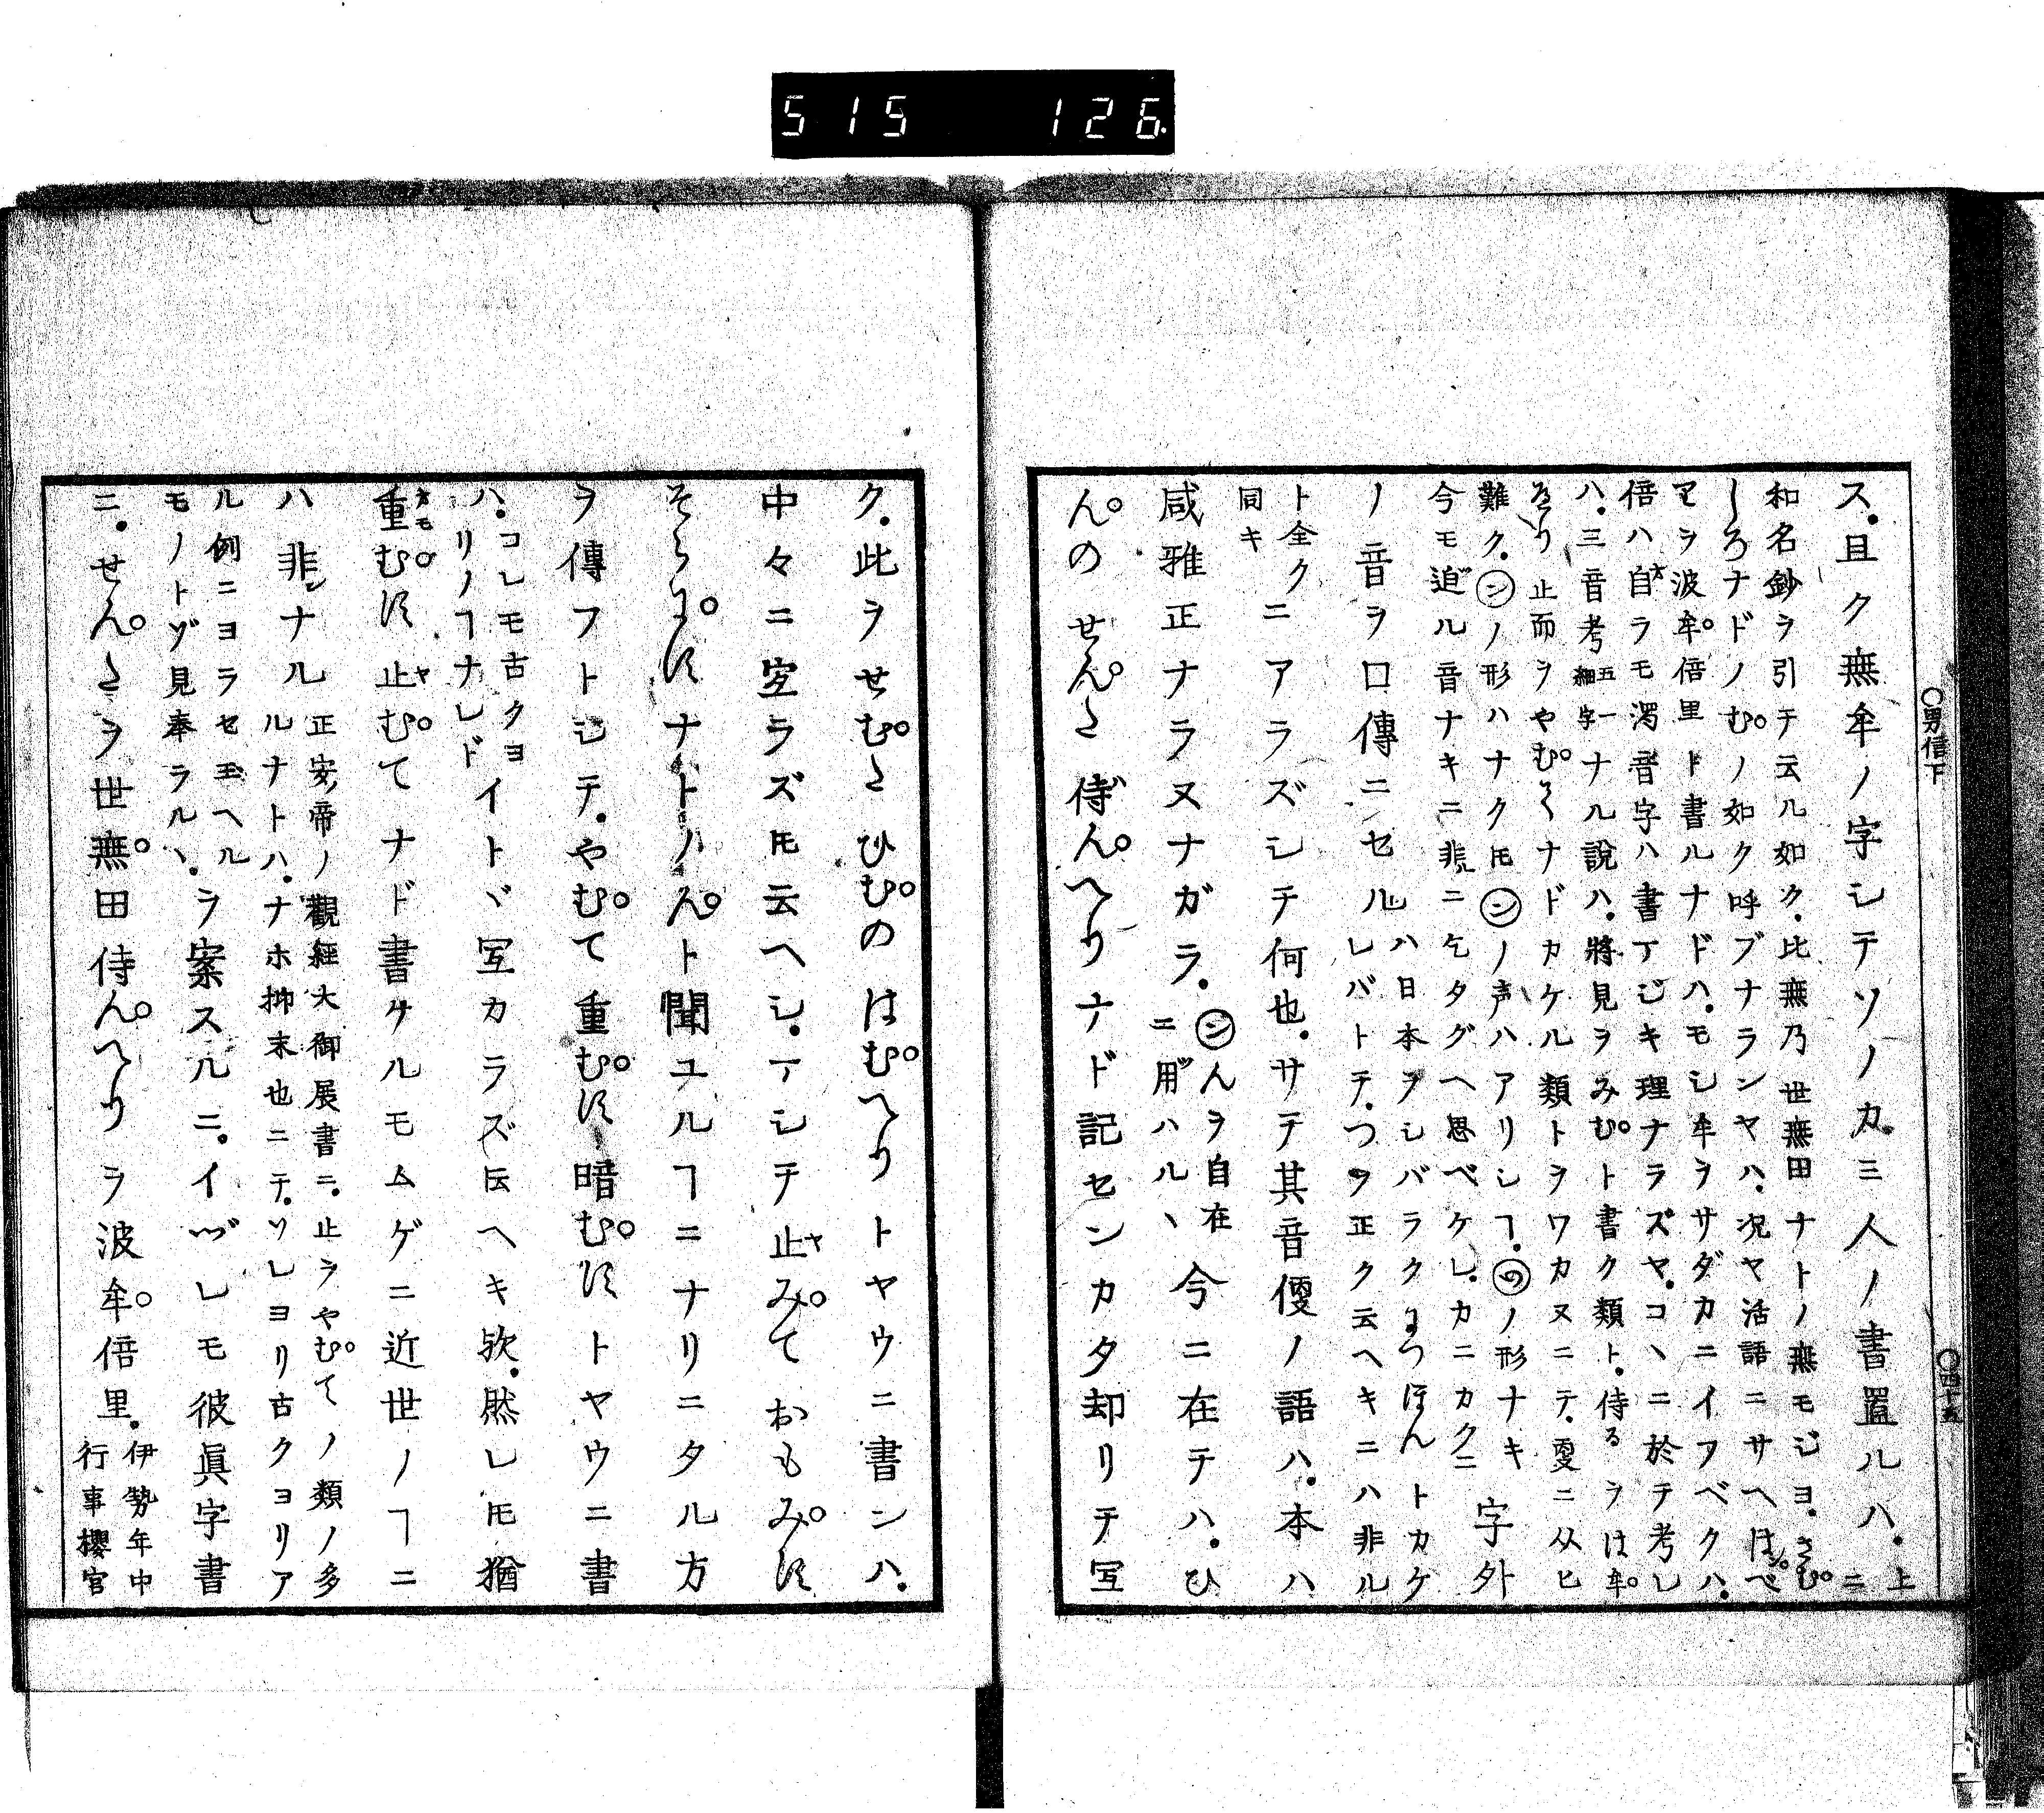 515 126
○男信下
○四十五
ス。且ク無牟ノ字シテソノカミ人ノ書置ルハ。上ニ
和名鈔ヲ引テ云ル如ク。比無乃 世無田ナトノ無モジヨ。さむ
しろナドノむノ如ク呼ブナランヤハ。況ヤ活語ニサヘはべ
ヲ波牟倍里ト書ルナドハ。モシ牟ヲサダカニイフベクハ。
倍ハ自ラモ濁音字ハ書マジキ理ナラズヤ。コヽニ於テ考レ
ハ。三音考五一細字ナル説ハ。將見ヲみむト書ク類ト。侍るヲは牟
り止而ヲやむてナドカケル類トヲワカヌニテ。ニ从ヒ
難ク。ンノ形ハナクトモンノ声ハアリシコト。ノ形ナキ
今モ迫ル音ナキニ非ルニヒタグヘ思ベケレ。カニカクニ 字外
ノ音ヲ口傳ニセル ハ日本ヲシバラクにつほんトカケ
レバトテ。つヲ正ク云ヘキニハ非ル
ト全ク
同キ
ニアラズシテ何也。サテ其音便ノ語ハ。本ハ
咸雅正ナラヌナガラ。ンんヲ自在
ニ用ハルヽ 今ニ在テハ。ひ
んの せんた 侍んへりナド記センカタ却リテ写
ク。此ヲせむた ひむの はむへりトヤウニ書ンハ。
中々ニ宜ラズトモ云ヘシ。マシテ止みて おもみす
そらにすナトハんト聞ユルコトニナリニタル方
ヲ傳フトシテ。やむて 重むす 暗むすトヤウニ書
ハ。コレモ古クヨ
リノコトナレド イトヾ写カラズ伝ヘキ欤。然レトモ猶
重むす 止むてナド書ケルモムゲニ近世ノコトニ
ハ非ルナル 正安帝ノ觀經大御展書ニ。止ヲやむてノ類ノ多
ルナトハ。ナホ抑末也ニテ。ソレヨリ古クヨリア
ル例ニヨラセ玉ヘル
モノトゾ見奉ラルヽ。ヲ案スルニ。イヅレモ彼眞字書
ニ。せんたヲ世無田 侍んへりヲ波牟倍里。伊勢年中
行事櫻宮